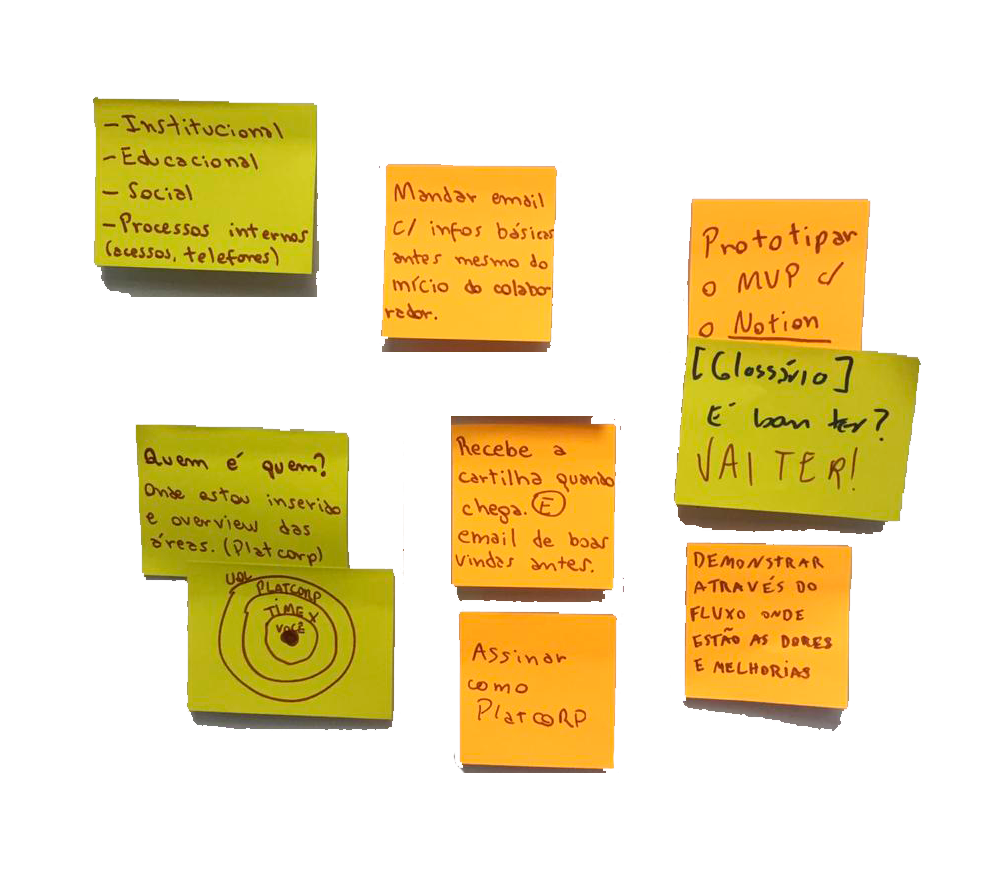 - Institucional
- Educacional
- Social
- Processos internos
(acessos, telefones)
Mandar email
c/ infos básicas
antes mesmo do
início do colabo
rador.
Prototipar
o MVP c/
o Notion
[Glossário]
É bom ter?
VAI TER!
Quem é quem?
Onde estou inserido
e overview das
áreas. (Platcorp)
UOL
PLATCORP
TIME X
VOCÊ
Recebe a
cartilha quando
chega. E
email de boas
vindas antes.
Assinar
como
PlatCORP
DEMONSTRAR
ATRAVÉS DO
FLUXO ONDE
ESTÃO AS DORES
E MELHORIAS